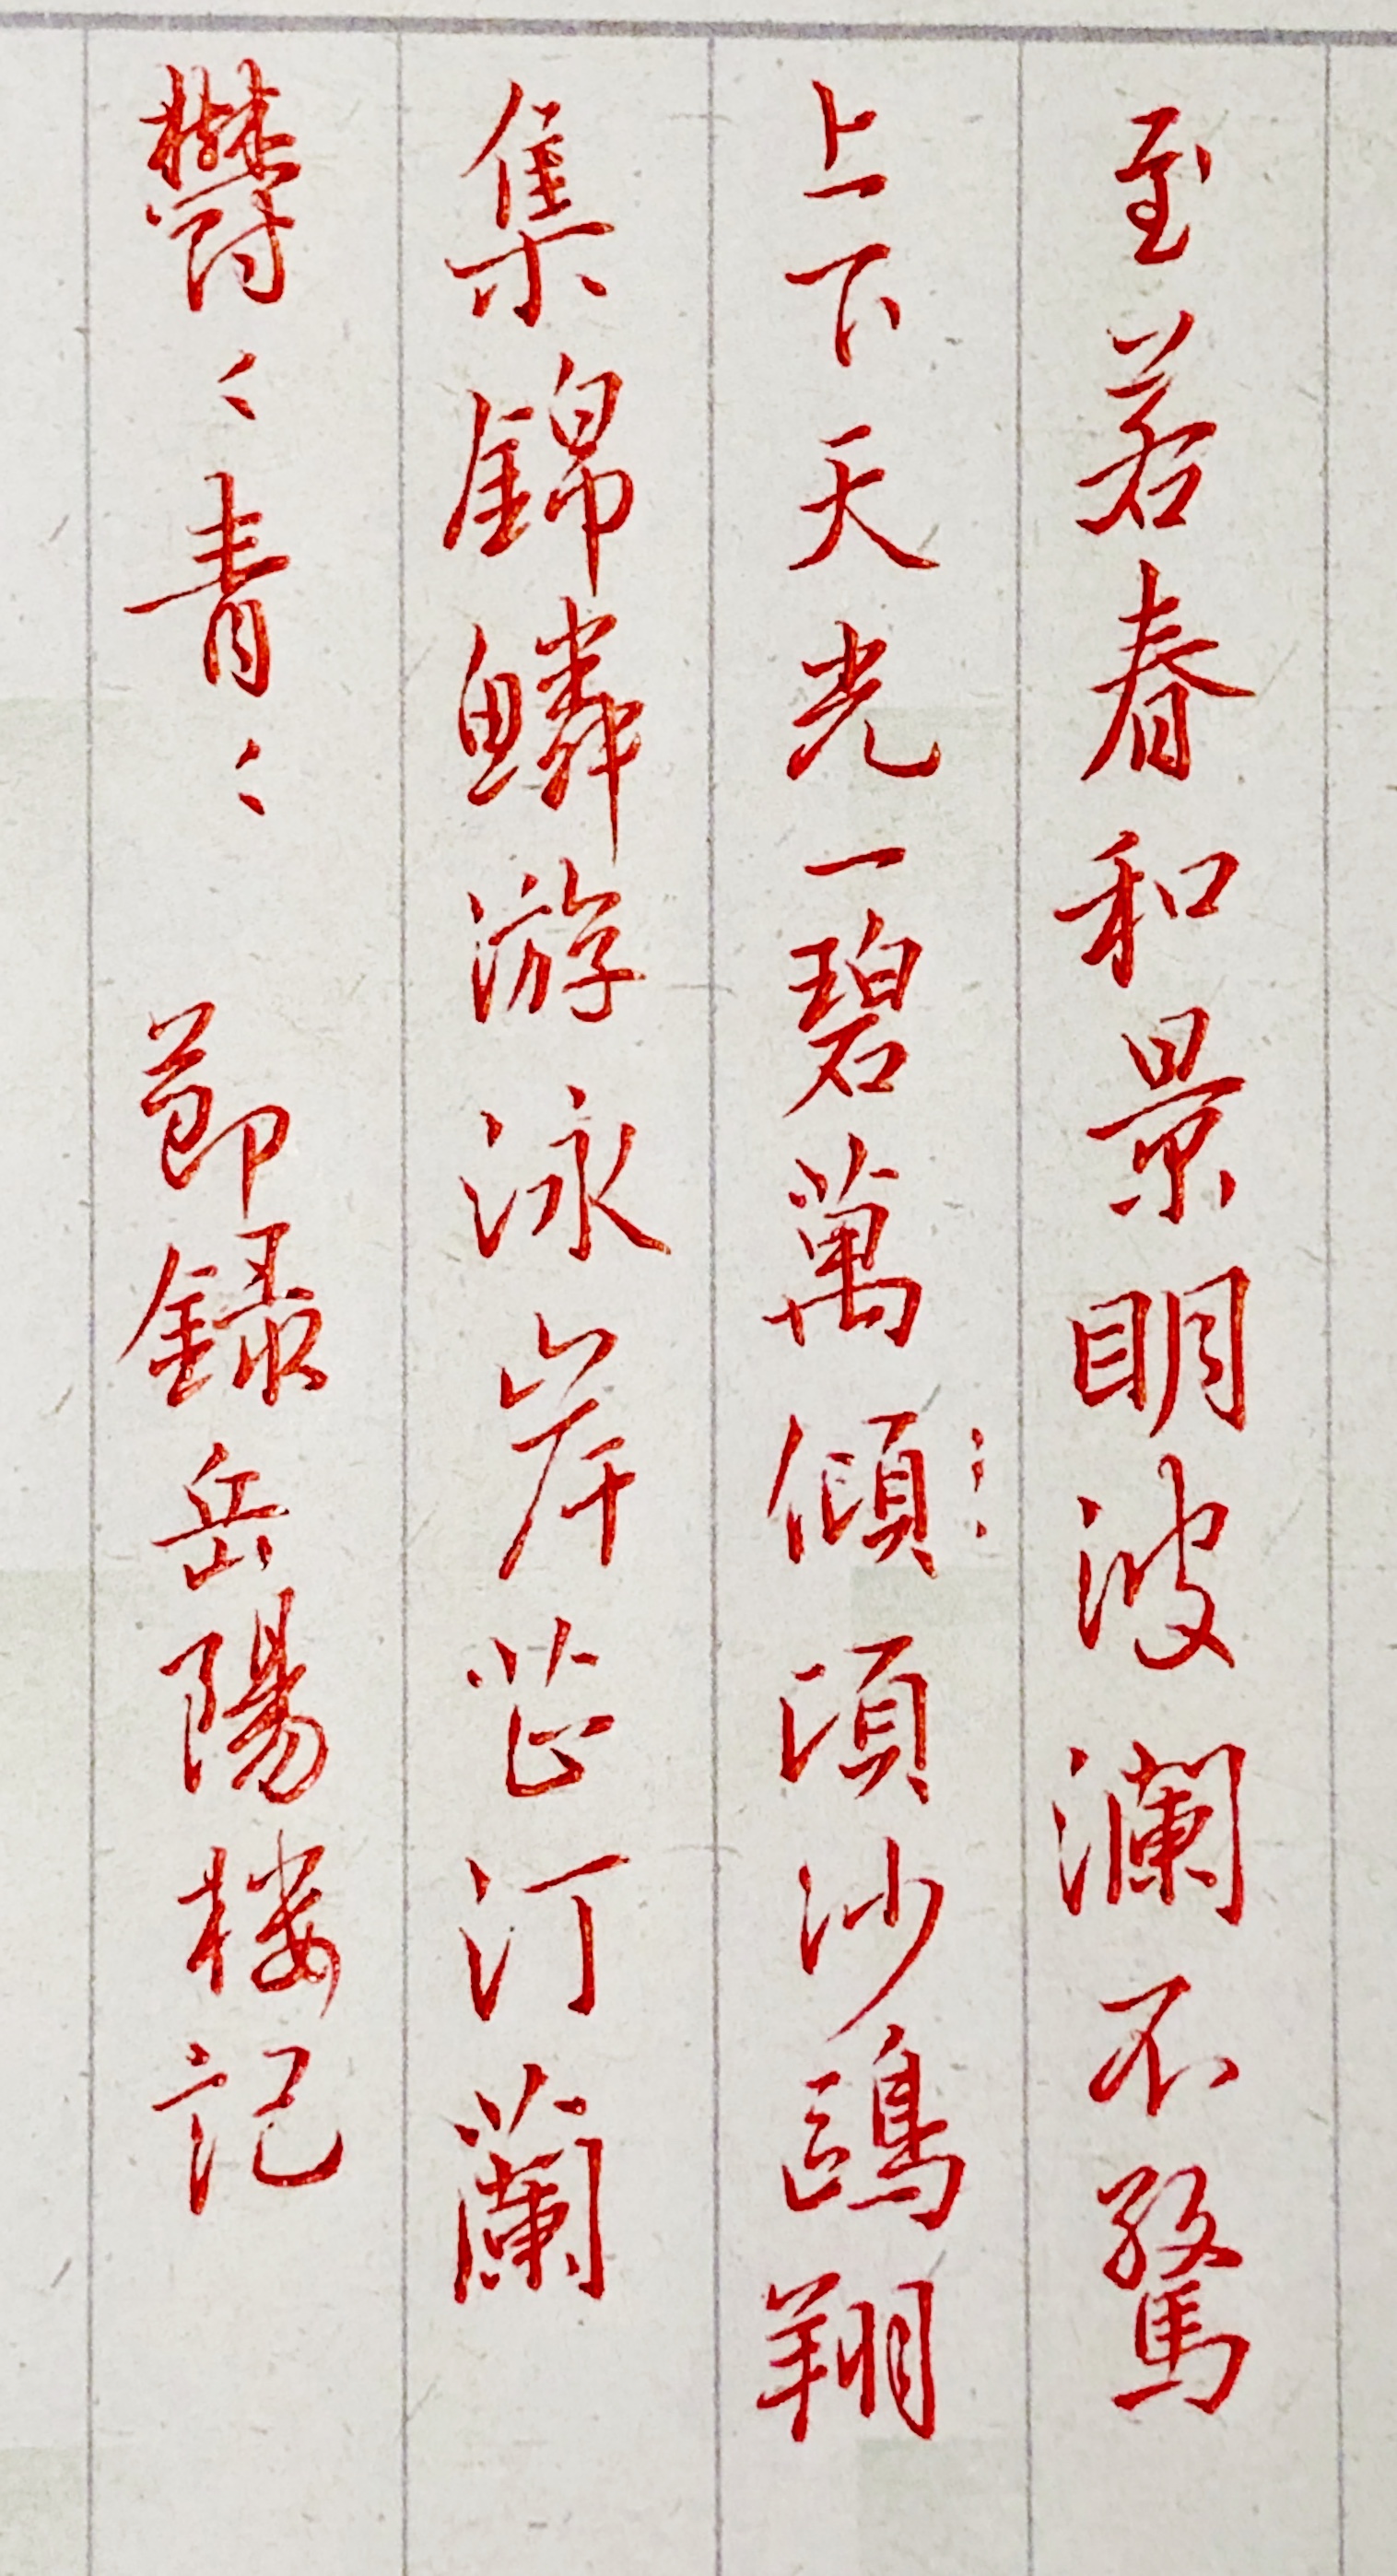 至若春和景明波瀾不驚
上下天光一碧萬傾頃沙鷗翔
集錦鱗游泳岸芷汀蘭
鬱〻青〻 節錄岳陽楼記